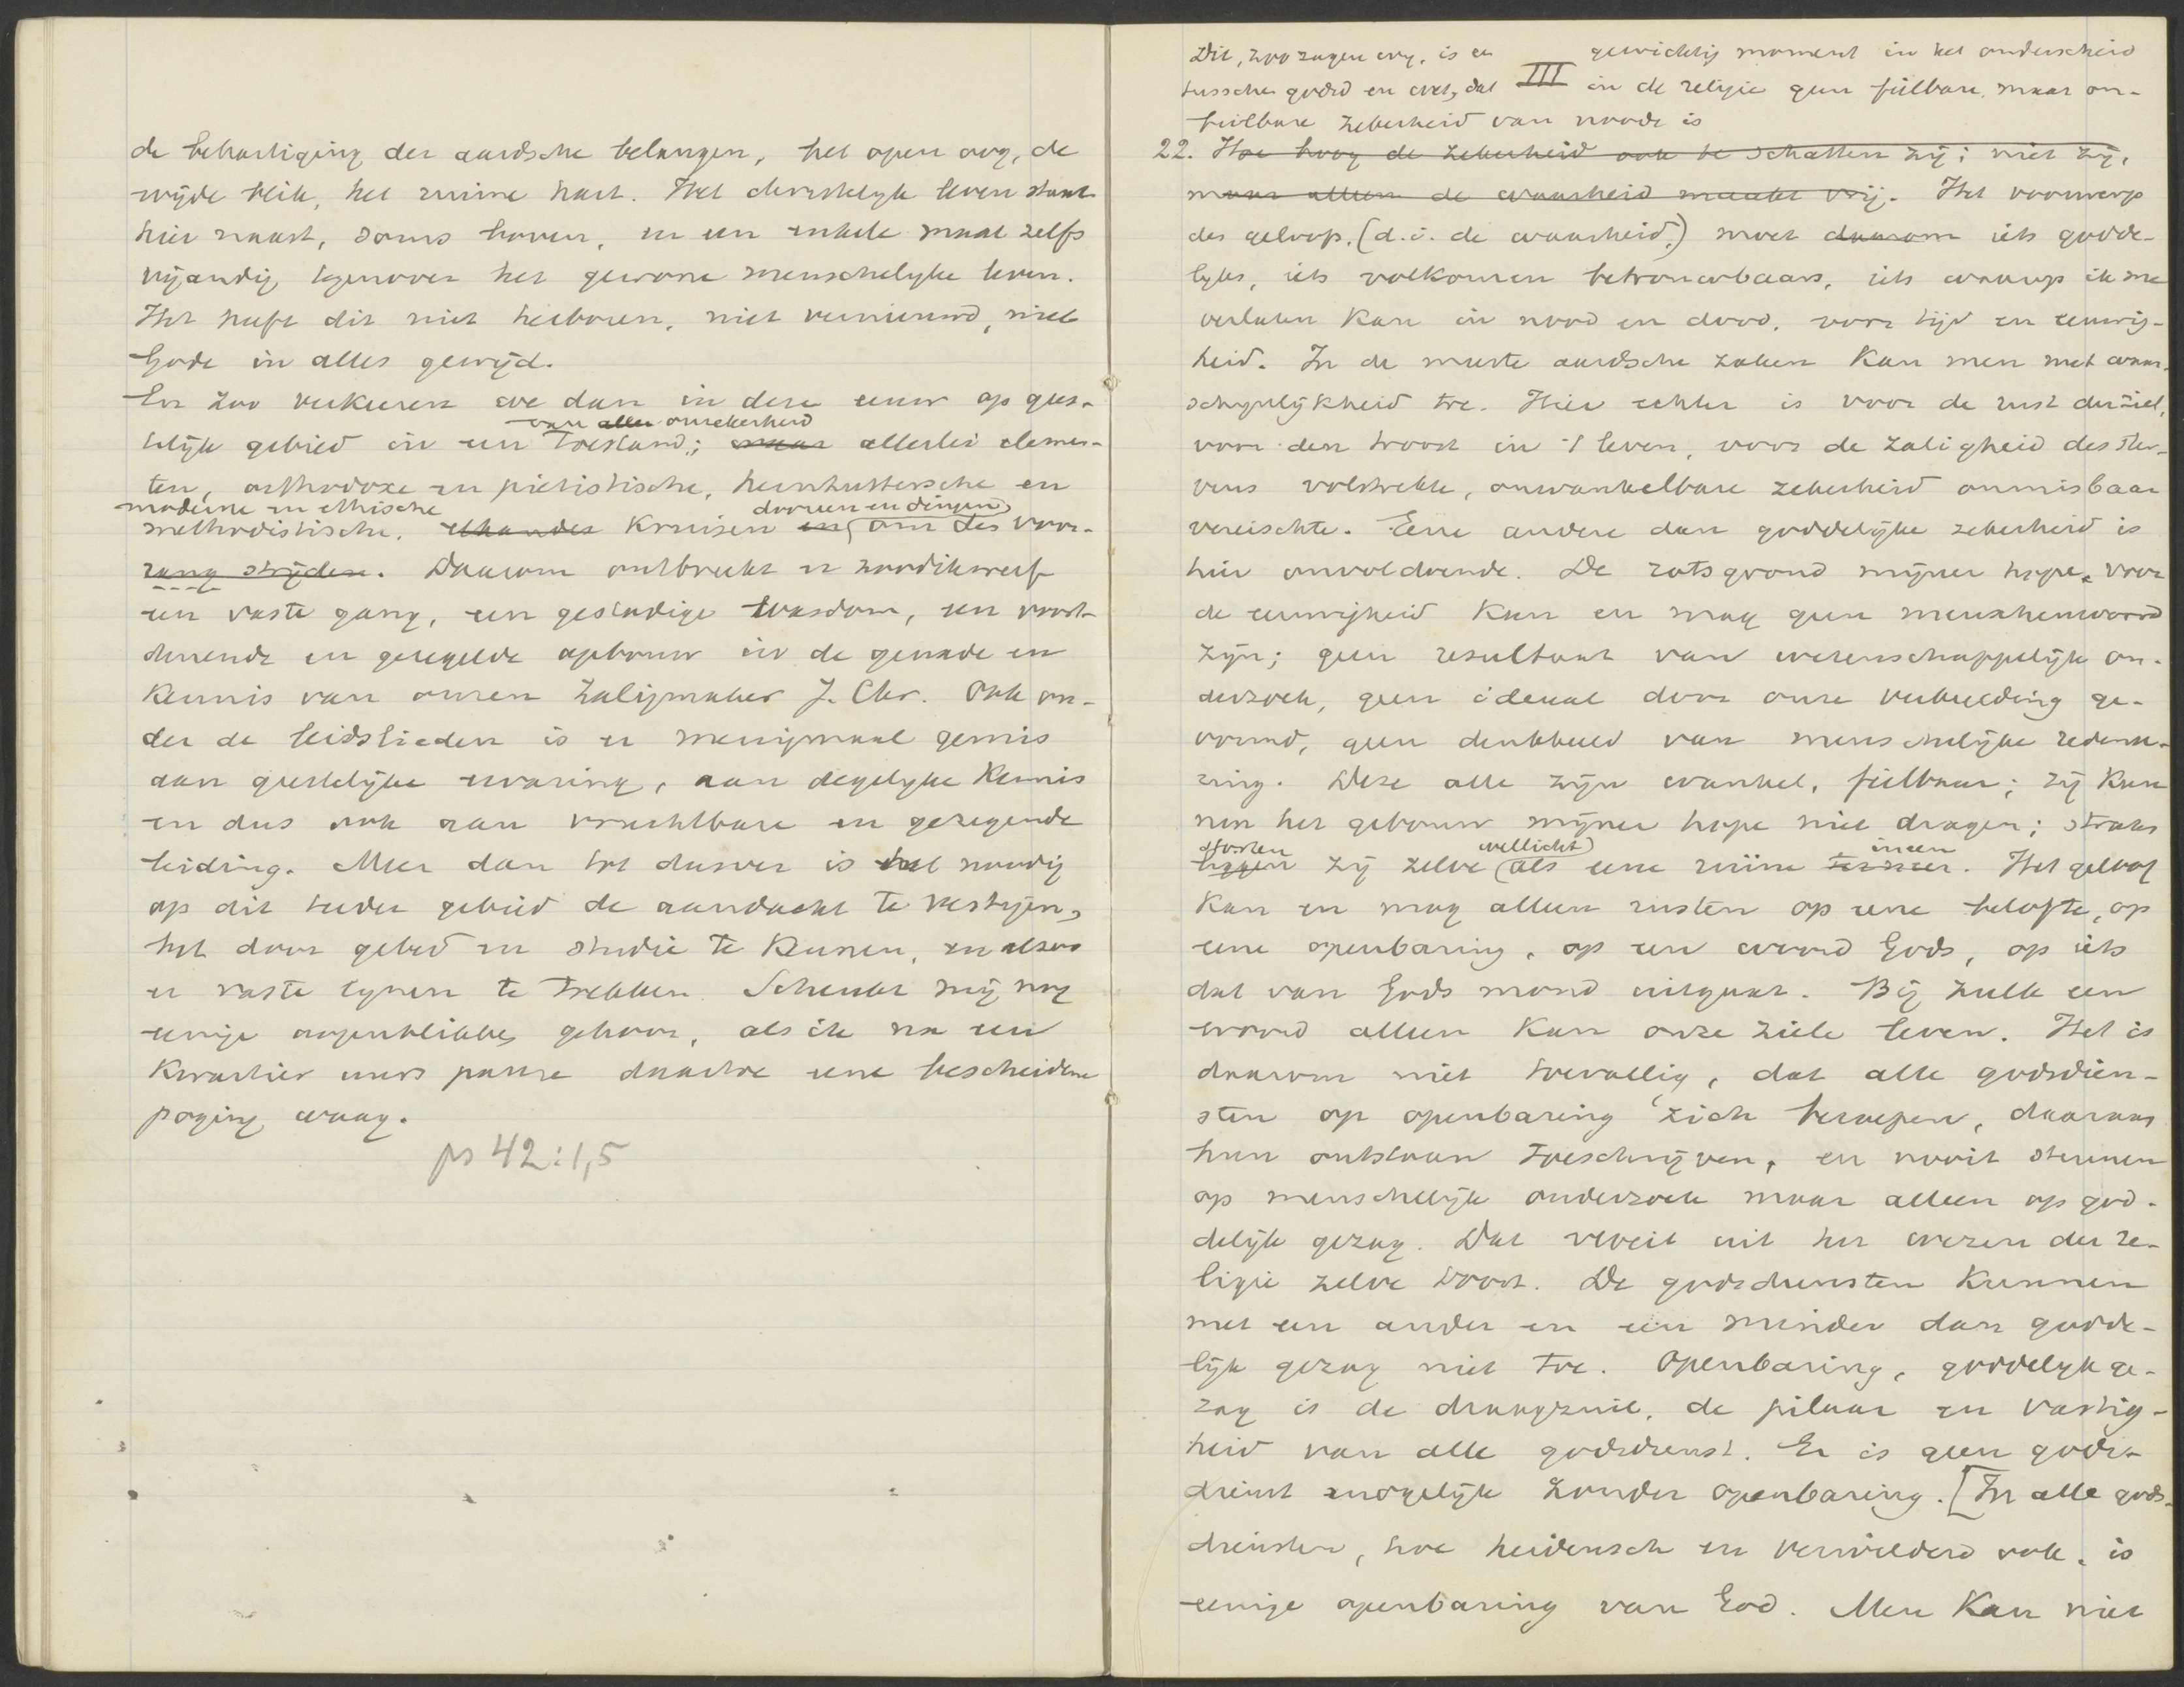 de behartiging der aardsche belangen, het open oog, de
wijde blik, het ruime hart. Het christelyk leven staat
hier naast, soms boven, en een enkele maal zelfs
vijandig tegenover het gewone menschelyke leven.
Het heeft dit niet herboren, niet vernieuwd, niet
Gode in alles gewijd.
En zoo verkeeren we dan in deze eeuw op gees-
van allen onzekerheid
telijk gebied in een toestand; maar allerlei elemen-
ten, orthodoxe en piëtistische, hernhuttersche en
moderne en ethische dooreen en dingen
methodistische, elkander kruisen en om den voor-
rang strijden. Daarom ontbreekt er zoo dikwerf
een vaste gang, een gestadige wasdom, een voort-
durende en geregelde opbouw in de genade en
kennis van onzen Zaligmaker J. Chr. Ook on-
der de leidslieden is er menigmaal gemis
aan geestelijke ervaring, aan degelyke kennis
en dus ook aan vruchtbare en gezegende
leiding. Meer dan tot dusver is het noodig
op dit teeder gebied de aandacht te vestigen,
het door gebed en studie te kennen, en alzoo
er vaste lynen te trekken. Schenkt mij nog
eenige oogenblikken gehoor, als ik na een
kwartier uurs pauze daartoe eene bescheidene
poging waag.
ps 42:1,5
Dit, zoo zagen wy, is een gewichtig moment in het onderscheid
tusschen godsd en wet, dat III in de religie geen feilbare, maar on-
feilbare zekerheid van noode is
22. Hoe hoog de zekerheid ook te schatten zij; niet zij,
maar alleen de waarheid maakt vrij. Het voorwerp
des geloofs, (d.i. de waarheid,) moet daarom iets godde-
lyks, iets volkomen betrouwbaars, iets waarop ik me
verlaten kan in nood en dood, voor tijd en eeuwig-
heid. In de meeste aardsche zaken kan men met waar-
schynlijkheid toe. Hier echter is voor de rust der ziel,
voor den troost in 't leven, voor de zaligheid des ster-
vens volstrekte, onwankelbare zekerheid onmisbaar
vereischte. Eene andere dan goddelijke zekerheid is
hier onvoldoende. De rotsgrond mijner hope voor
de eeuwigheid kan en mag geen menschenwoord
zijn; geen resultaat van wetenschappelijk on-
derzoek, geen ideaal door onze verbeelding ge-
vormd, geen denkbeeld van menschelijke redenee-
ring. Deze alle zijn wankel, feilbaar; zij kun-
nen het gebouw mijner hope niet dragen; straks
storten wellicht ineen
liggen zij zelve als eene ruïne terneer. Het geloof
kan en mag alleen rusten op eene belofte, op
eene openbaring, op een woord Gods, op iets
dat van Gods mond uitgaat. Bij zulk een
woord alleen kan onze ziele leven. Het is
daarom niet toevallig, dat alle godsdien-
sten op openbaring zich beroepen, daaraan
hun ontstaan toeschrijven, en nooit steunen
op menschelijk onderzoek maar alleen op god-
delijk gezag. Dat vloeit uit het wezen der re-
ligie zelve voort. De godsdiensten kunnen
met een ander en een minder dan godde-
lijk gezag niet toe. Openbaring, goddelyk ge-
zag is de draagzuil, de pilaar en vastig-
heid van alle godsdienst. Er is geen gods-
dienst mogelijk zonder openbaring. [In alle gods-
diensten, hoe heidensch en verwilderd ook, is
eenige openbaring van God. Men kan niet